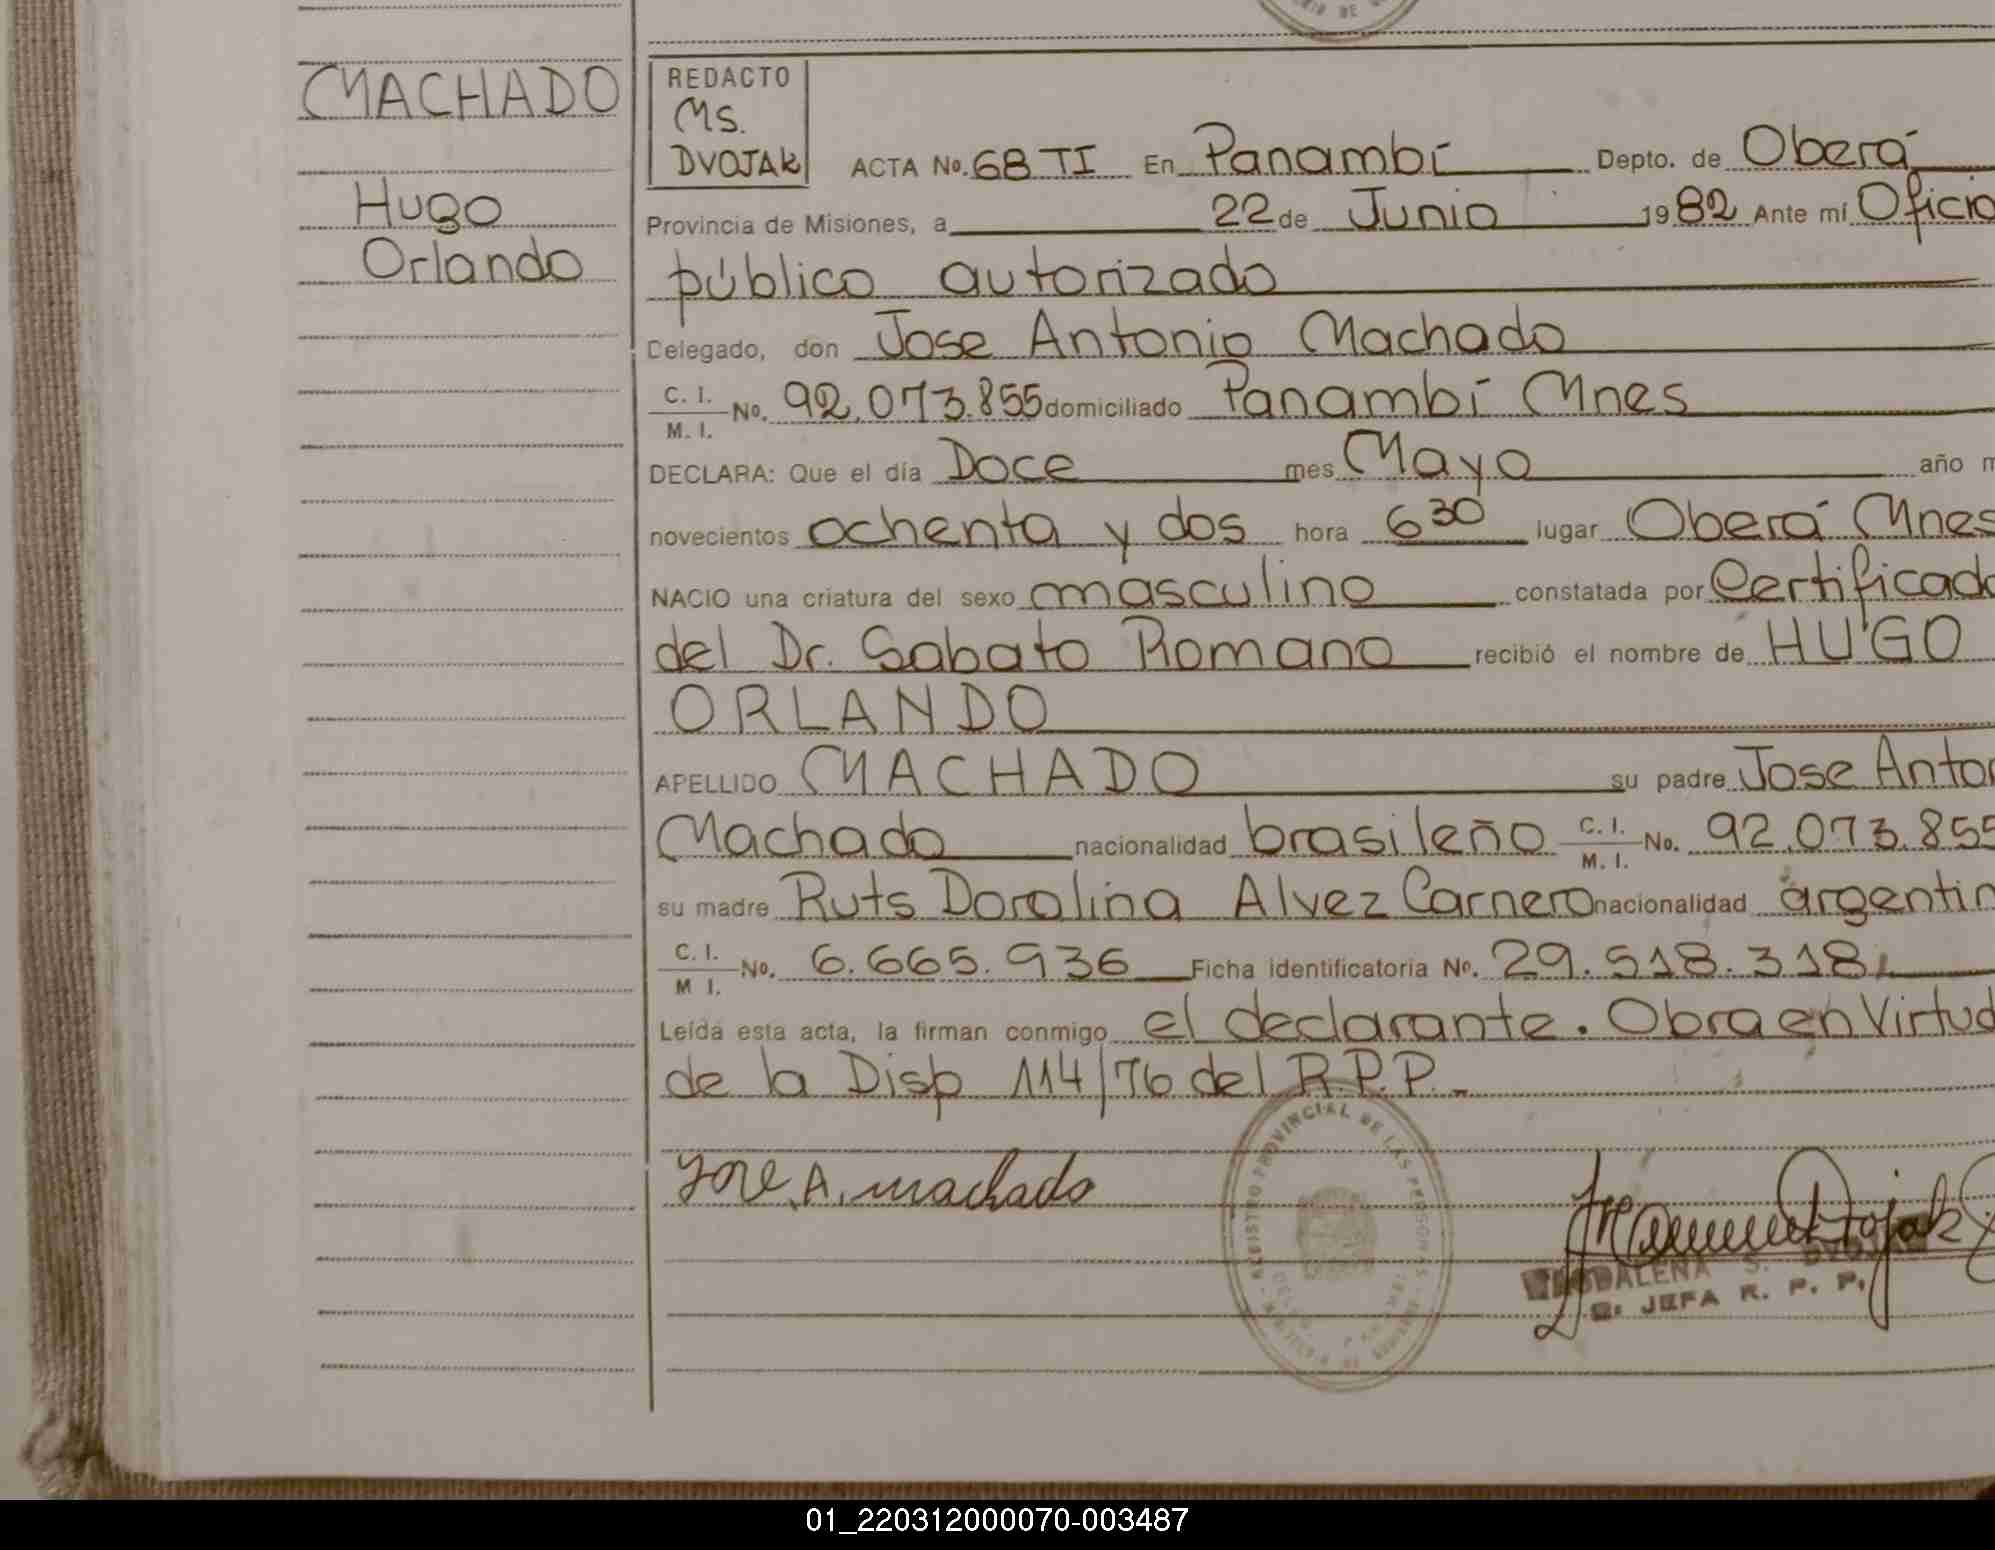 MACHADO
Hugo
Orlando
REDACTO
MS.
DVOJAK
ACTA No. 68 TI En Panambí Depto. de Oberá
Provincia de Misiones, a 22 de Junio 1982 Ante mí Oficia
público autorizado
Delegado, don Jose Antonio Machado
C. I.
M. I. No. 92.073.855 domiciliado Panambí Mnes
DECLARA: Que el día Doce mes Mayo año m
novecientos ochenta y dos hora 6 30 lugar Oberá Mnes
NACIO una criatura del sexo masculino constatada por Certificado
del Dr. Sabato Romano recibió el nombre de HUGO
ORLANDO
APELLIDO MACHADO su padre Jose Anton
Machado nacionalidad brasileño C. I. M. I. No. 92.073.855
su madre Ruts Doralina Alvez Carnero nacionalidad argentin
C. I.
M I. No. 6.665.936 Ficha identificatoria No. 29.518.318
Leída esta acta, la firman conmigo el declarante. Obra en Virtud
de la Disp 114/76 del R.P.P.-
REGISTRO PROVINCIAL DE LAS PERSONAS
Jose A. machado
MAGDALENA S. DVOJAK
JEFA R. P. P.
01_220312000070-003487